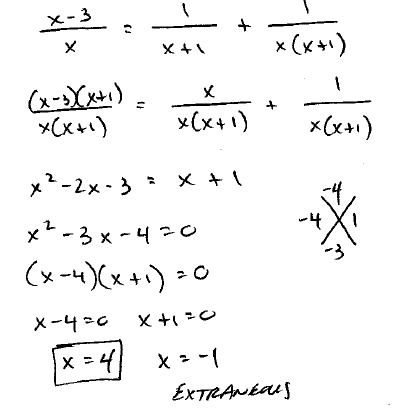 x-3/x = 1/x+1 + 1/x(x+1)
(x-3)(x+1)/x(x+1) = x/x(x+1) + 1/x(x+1)
x²-2x-3 = x+1
x²-3x-4=0
(x-4)(x+1)=0
x-4=0 x+1=0
x=4 x=-1
EXTRANEOUS
-4
-4 1
-3